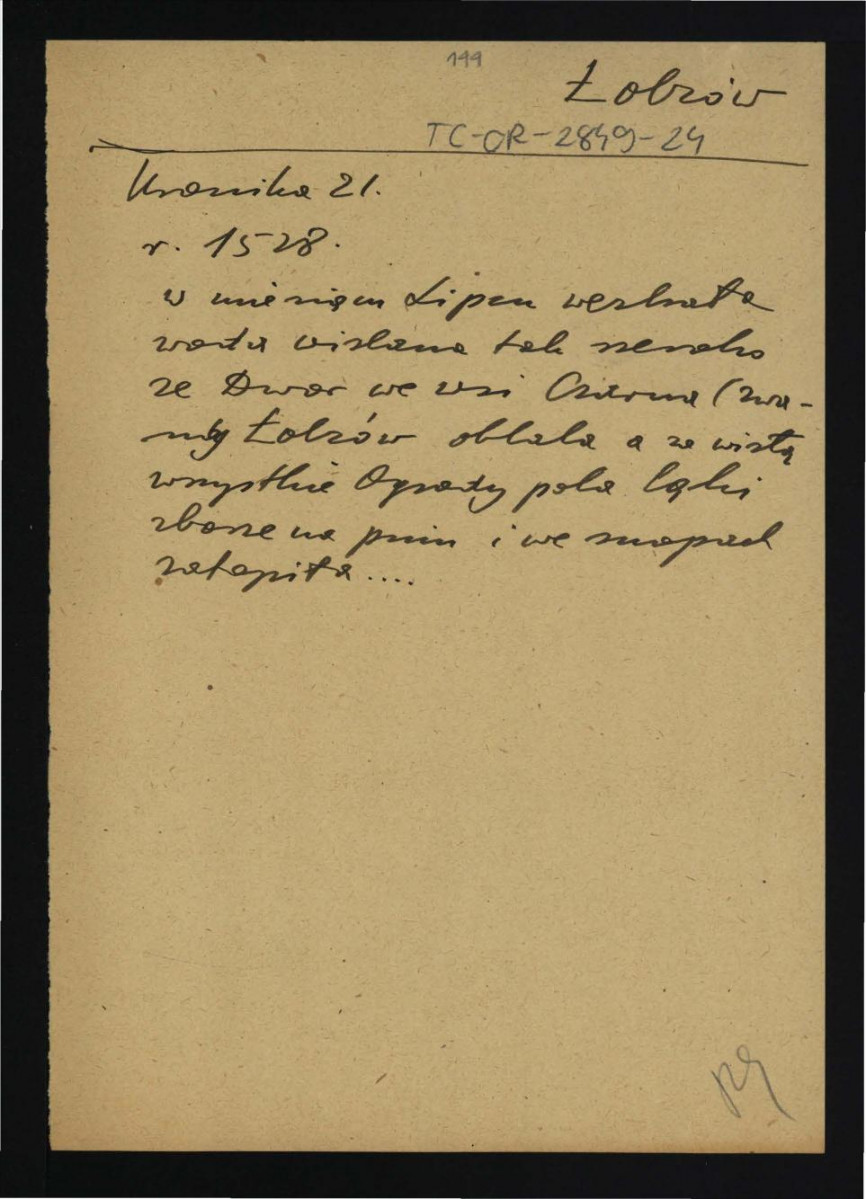 199
Łobzów
TC-OR-2849-24
Kronika 21.
r. 1528.
w miesiącu Lipcu wezbrała
woda wiślana tak szeroko
że Dwor we wsi Czarna (zwa-
néj Łobzów oblala a za wisłą
wszystkie Ogrody pola łąki
zboże na pniu i we snopach
zatopiła....